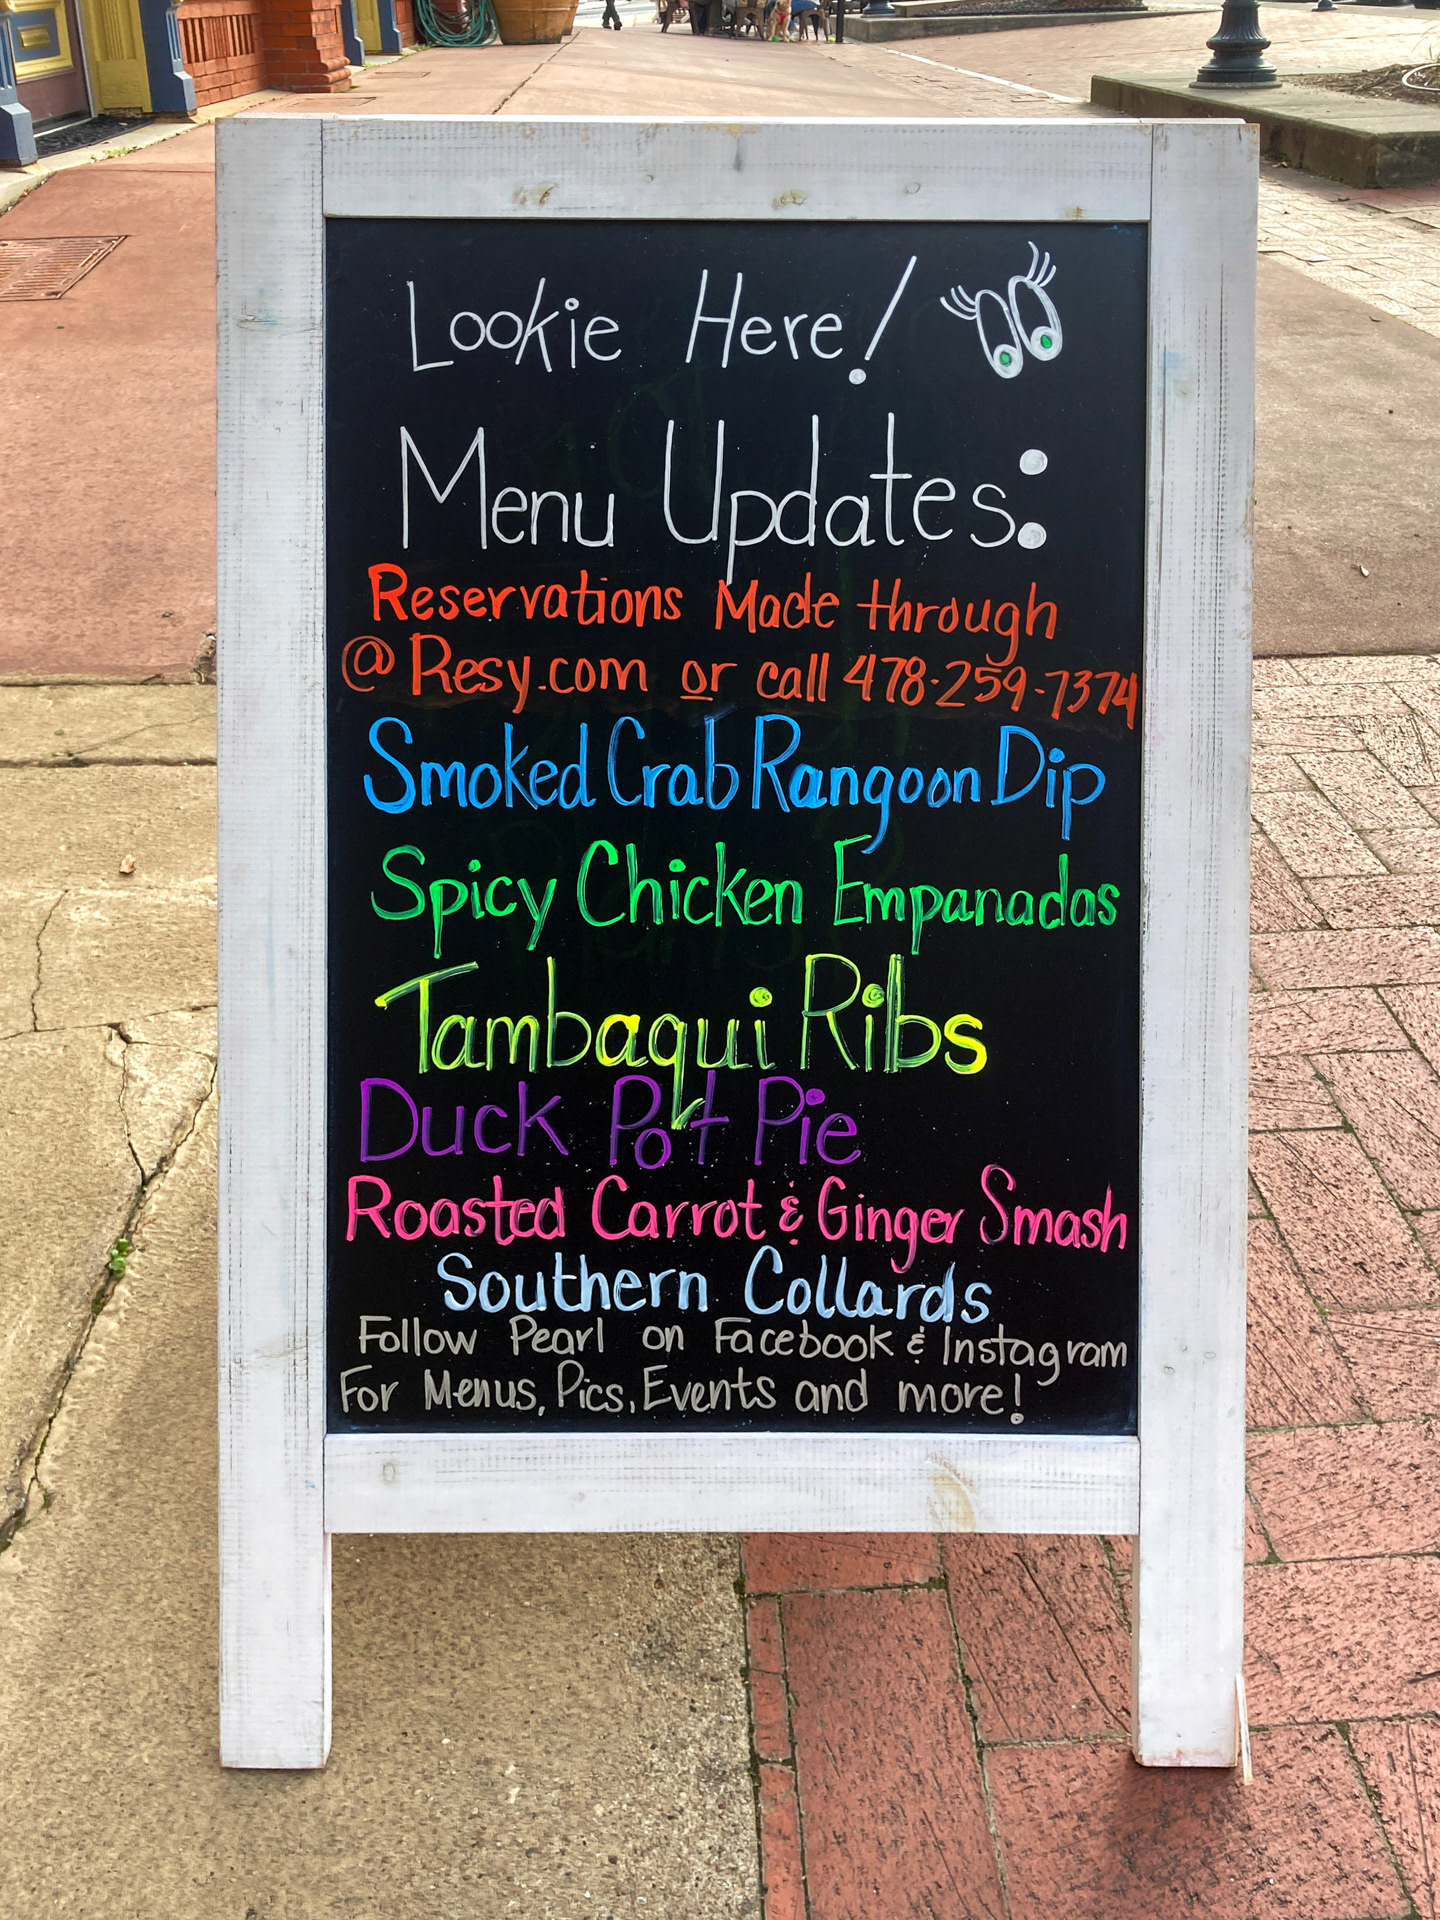 Lookie Here!
Menu Updates:
Reservations Made through
@ Resy.com or call 478-259-7374
Smoked Crab Rangoon Dip
Spicy Chicken Empanadas
Tambaqui Ribs
Duck Pot Pie
Roasted Carrot & Ginger Smash
Southern Collards
Follow Pearl on Facebook & Instagram
For Menus, Pics, Events and more!